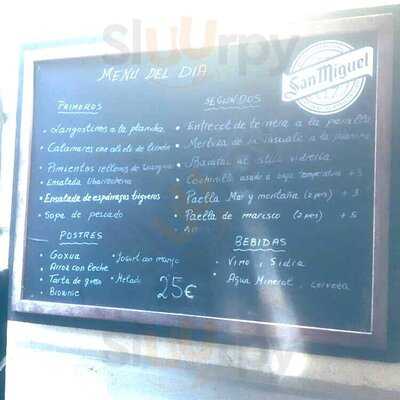 Slurpy
San Miguel
MENU DEL DIA
PRIMEROS
• Langostinos a la plancha
• Calamares con ali oli de limón
• Pimientos rellenos de
• Ensalada
• Ensalada de espárragos trigueros
• Sopa de pescado
SEGUNDOS
• Entrecot de ternera a la parrilla
• Merluza de a la
• Bacalao al
• Cochinillo asado a baja temperatura + 3
• Paella Mar y montaña (2 pers) + 3
• Paella de marisco (2 pers) + 5
POSTRES
• Goxua
• Arroz con leche
• Tarta de queso
• Brownie
• Yogurt con mango
• Helado
25€
BEBIDAS
• Vino, Sidra
• Agua Mineral, cerveza
Slurpy